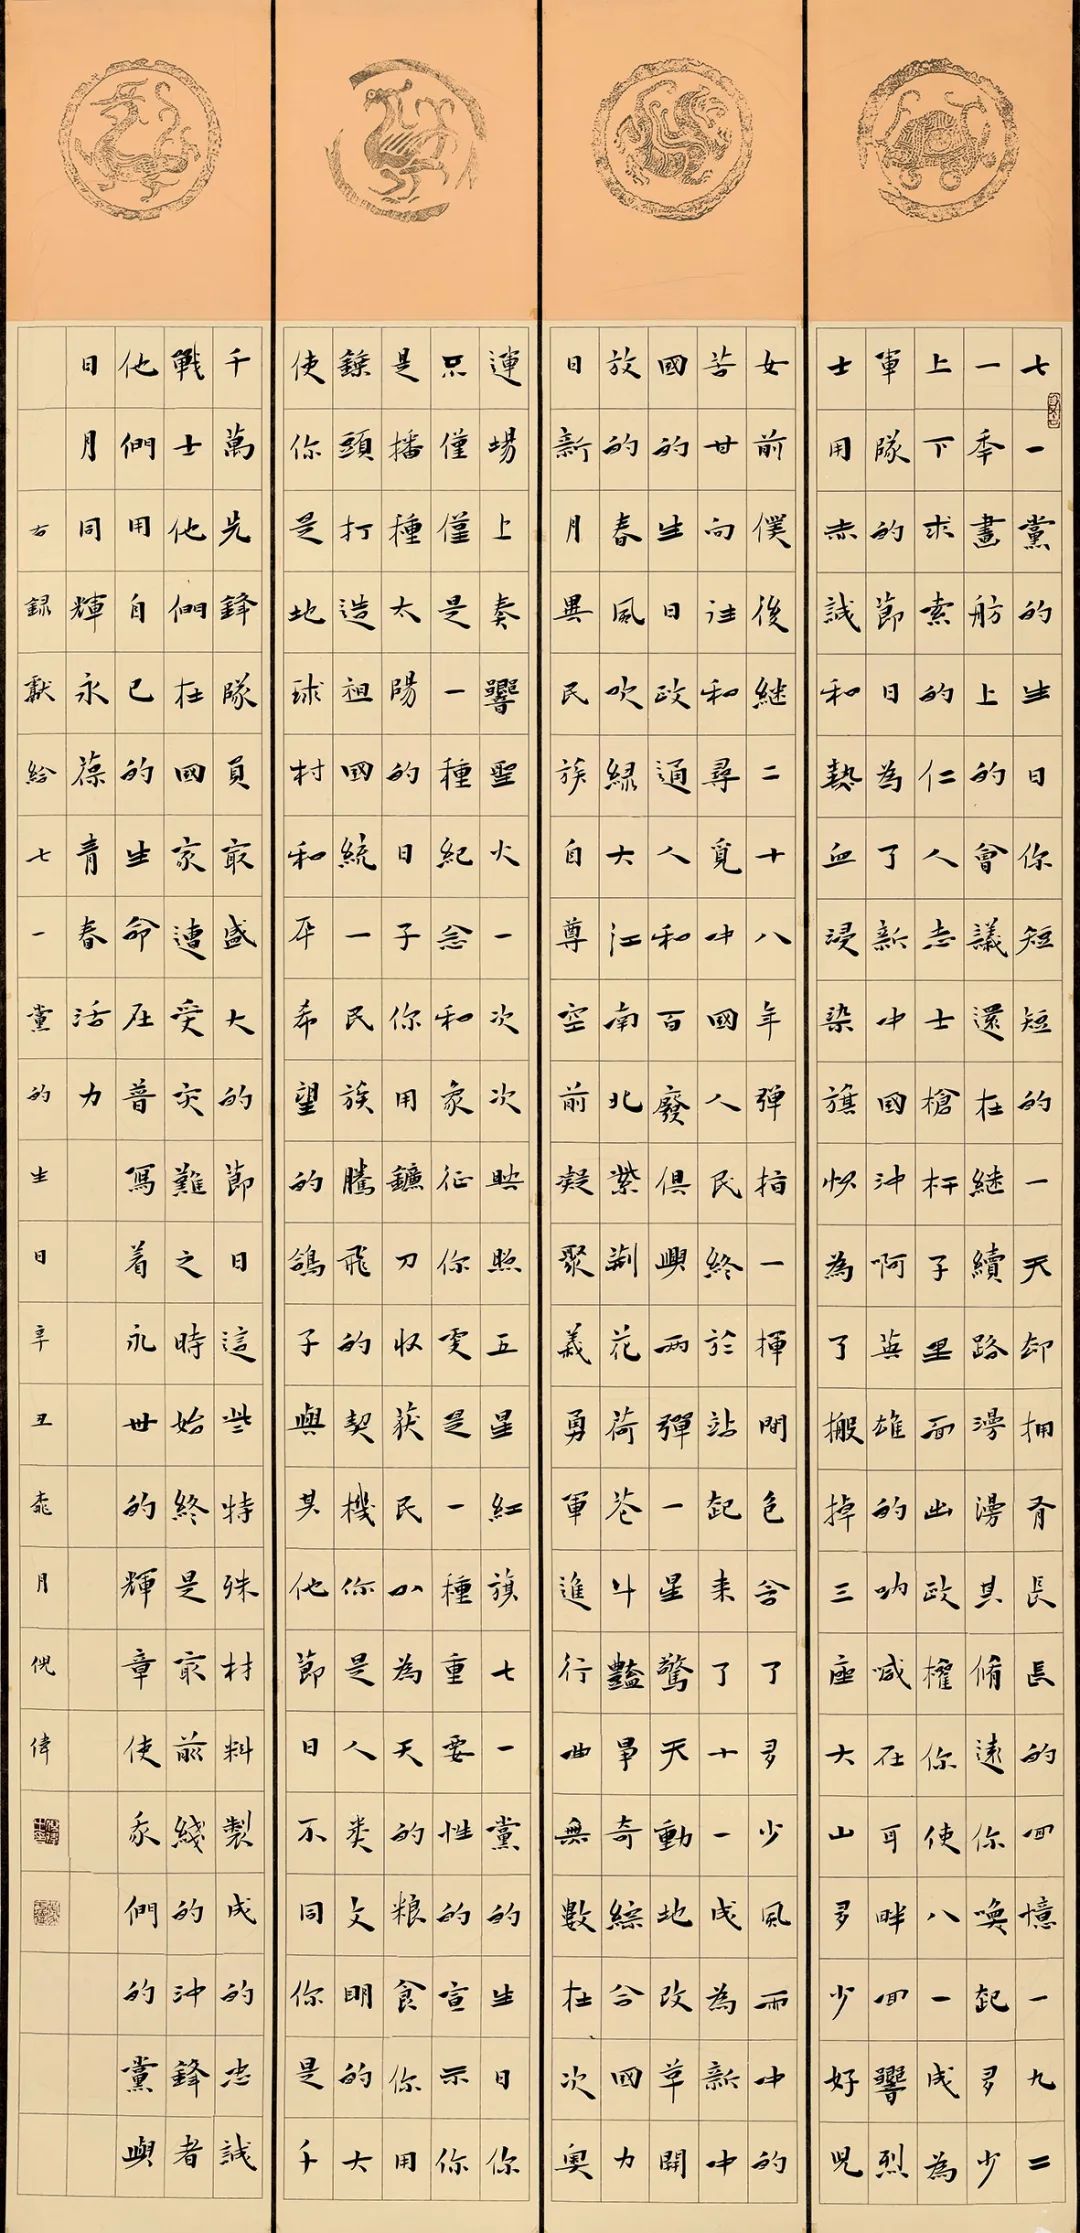 七一黨的生日你短短的一天却拥有長長的回憶一九二
一年畫舫上的會議還在繼續路漫漫其脩遠你喚起多少
上下求索的仁人志士槍杆子里面出政權你使八一成為
軍隊的節日為了新中國沖啊英雄的吶喊在耳畔回響烈
士用赤誠和熱血浸染旗幟為了搬掉三座大山多少好兒
女前僕後繼二十八年彈指一揮間色含了多少風雨中的
苦甘向往和尋覓中國人民終於站起来了十一成為新中
國的生日政通人和百廢俱興兩彈一星驚天動地改革開
放的春風吹綠大江南北紫荆花荷花斗豔争奇綜合國力
日新月異民族自尊空前凝聚義勇軍進行曲無數在次奧
運場上奏響聖火一次次映照五星紅旗七一黨的生日你
僅僅是一種紀念和象征你更是一種重要性的宣示你
是播種太陽的日子你用鐮刀收获民以為天的粮食你用
錘頭打造祖國統一民族騰飛的契機你是人类文明的大
使你是地球村和平希望的鴿子與其他節日不同你是千
千萬先鋒隊員最盛大的節日這些特殊材料製成的忠誠
戰士他們在國家遭受灾難之時始終是最前綫的沖鋒者
他們用自己的生命在普寫着永世的輝章使我們的黨與
日月同輝永葆青春活力
右録獻給七一黨的生日辛丑桃月倪偉